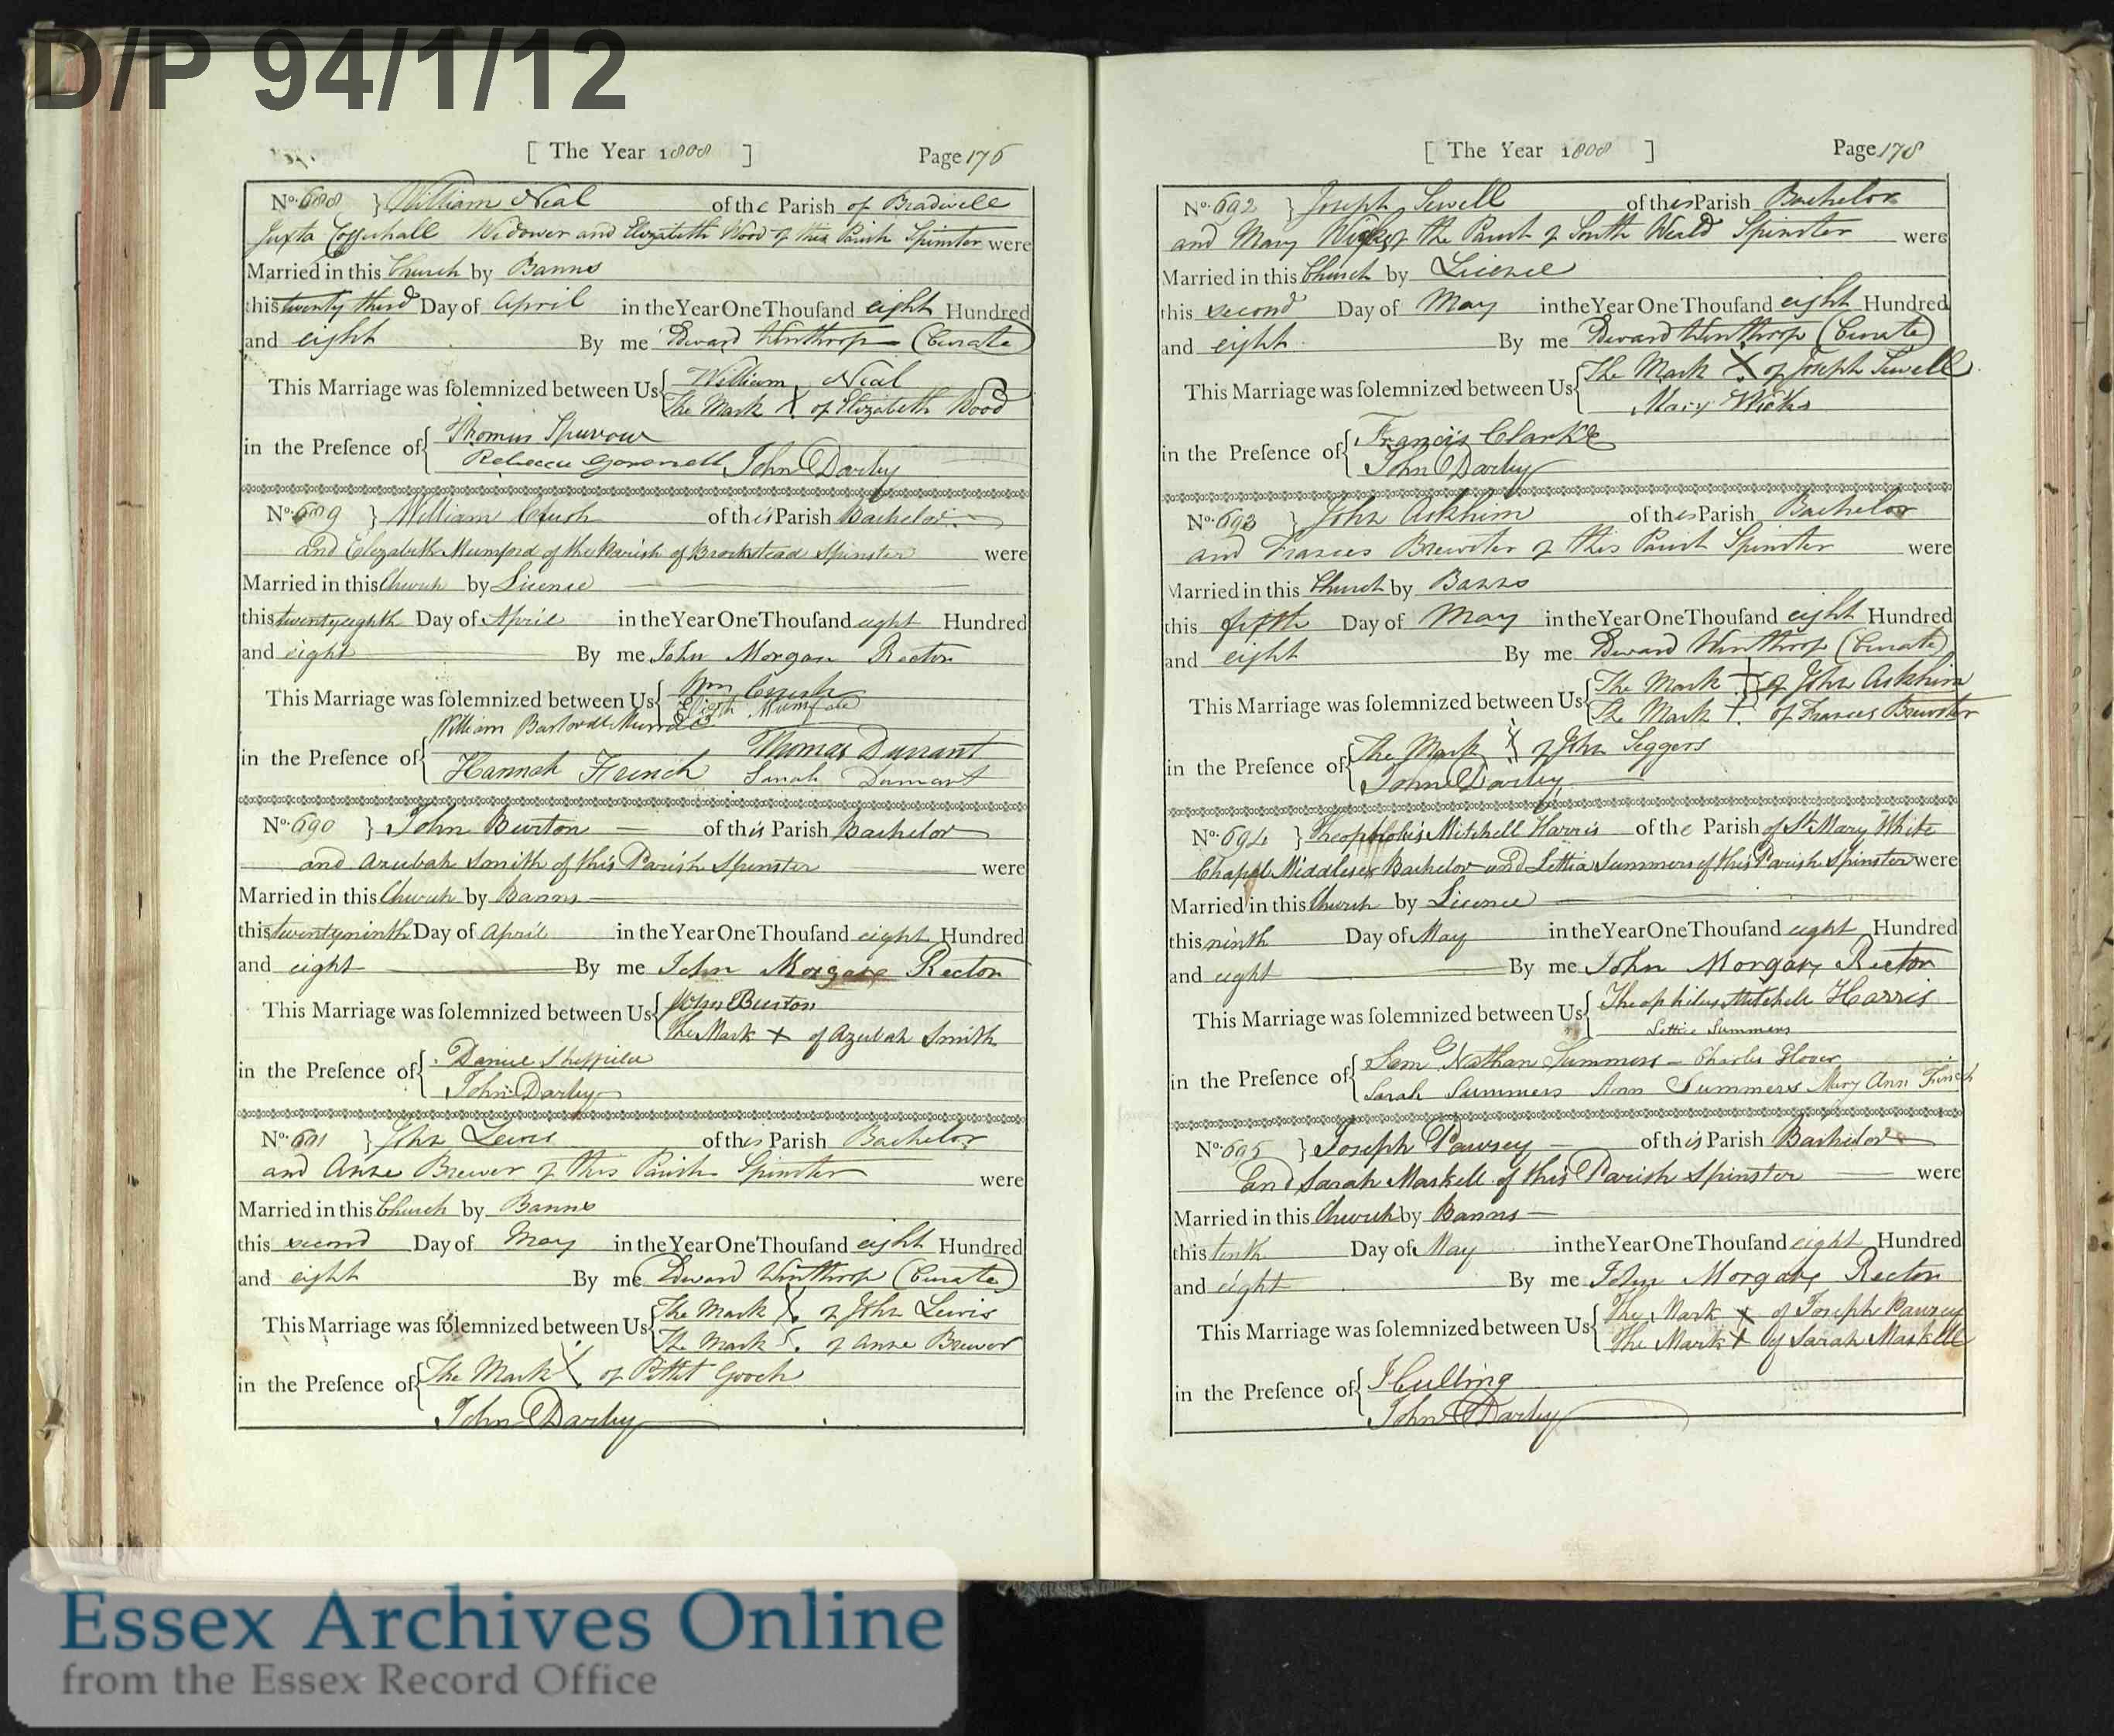 D/P 94/1/12
[ The Year 1808 ] Page 176
No. 688 } William Neal of the Parish of Bradwell
Juxta Coggeshall Widower and Elizabeth Wood of this Parish Spinster were
Married in this Church by Banns
this twenty third Day of April in the Year One Thousand eight Hundred
and eight By me Edward Winthrop (Curate)
This Marriage was solemnized between Us { William Neal
The Mark X of Elizabeth Wood
in the Presence of { Thomas Spurrow
Rebecca John Darby
No. 689 } William Crush of this Parish Bachelor
and Elizabeth Mumford of the Parish of Spinster were
Married in this Church by Licence
this twenty eighth Day of April in the Year One Thousand eight Hundred
and eight By me John Morgan Rector
This Marriage was solemnized between Us { Wm Crush
Elizth Mumford
William
in the Presence of { Thomas Durrant
Hannah French Sarah Durrant
No. 690 } John Burton of this Parish Bachelor
and Azubah Smith of this Parish Spinster were
Married in this Church by Banns
this twenty ninth Day of April in the Year One Thousand eight Hundred
and eight By me John Morgan Rector
This Marriage was solemnized between Us { John Burton
The Mark + of Azubah Smith
in the Presence of { Daniel Sheffield
John Darby
No. 691 } John Lewis of this Parish Bachelor
and Anne Brewer of this Parish Spinster were
Married in this Church by Banns
this second Day of May in the Year One Thousand eight Hundred
and eight By me Edward Winthrop (Curate)
This Marriage was solemnized between Us { The Mark X of John Lewis
The Mark of Anne Brewer
in the Presence of { The Mark X of Gooch
John Darby
[ The Year 1808 ] Page 178
No. 692 } Joseph Sewell of this Parish Bachelor
and Mary Wicks of the Parish of South Weald Spinster were
Married in this Church by Licence
this second Day of May in the Year One Thousand eight Hundred
and eight By me Edward Winthrop (Curate)
This Marriage was solemnized between Us { The Mark X of Joseph Sewell
Mary Wicks
in the Presence of { Francis Clarke
John Darby
No. 693 } John Askhim of this Parish Bachelor
and Frances Brewster of this Parish Spinster were
Married in this Church by Banns
this fifth Day of May in the Year One Thousand eight Hundred
and eight By me Edward Winthrop (Curate)
This Marriage was solemnized between Us { The Mark + of John Askhim
The Mark + of Frances Brewster
in the Presence of { The Mark X of John Seggers
John Darby
No. 694 } Mitchell Harris of the Parish of St Mary White
Chappl Middlesex Bachelor and Lettia Summers of this Parish Spinster were
Married in this Church by Licence
this ninth Day of May in the Year One Thousand eight Hundred
and eight By me John Morgan Rector
This Marriage was solemnized between Us { Theophilus Mitchell Harris
Lettice Summers
in the Presence of { Saml Nathan Summers Charles Glover
Sarah Summers Ann Summers Mary Ann French
No. 695 } Joseph Pawsey of this Parish Bachelor
and Sarah Maskell of this Parish Spinster were
Married in this Church by Banns
this tenth Day of May in the Year One Thousand eight Hundred
and eight By me John Morgan Rector
This Marriage was solemnized between Us { The Mark X of Joseph Pawsey
The Mark + of Sarah Maskell
in the Presence of { J Culling
John Darby
Essex Archives Online
from the Essex Record Office